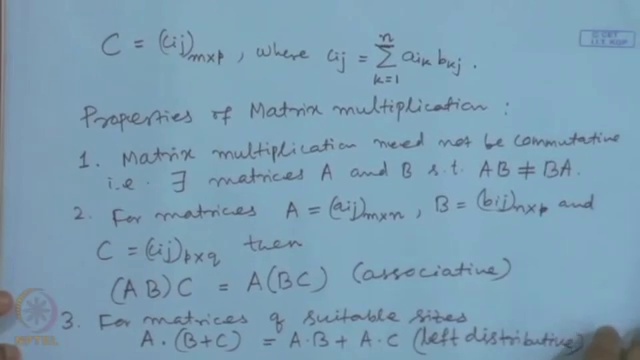 C = (cij)m×p, where cij = ∑_{k=1}^{n} aik bkj.
Properties of Matrix multiplication :
1. Matrix multiplication need not be commutative
i.e. ∃ matrices A and B s.t. AB ≠ BA.
2. For matrices A = (aij)m×n, B = (bij)n×p and
C = (cij)p×q then
(AB)C = A(BC) (associative)
3. For matrices of suitable sizes
A.(B+C) = A.B + A.C (left distributive)
NPTEL